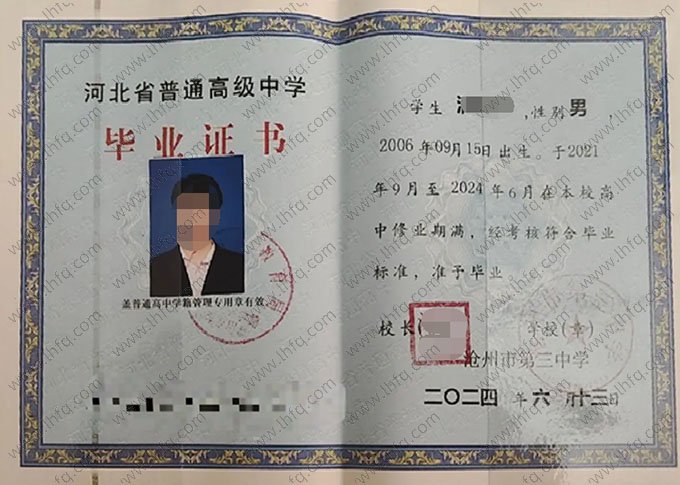 河北省普通高级中学
毕业证书
盖普通高中学籍管理专用章有效
学生 ,性别 男 ,
2006 年09月15日出生。于2021
年9月至 2024 年6月在本校高
中修业期满，经考核符合毕业
标准，准予毕业。
校长 学校(章)
沧州市第三中学
二〇二四 年 六 月十三日
www.lhfq.com